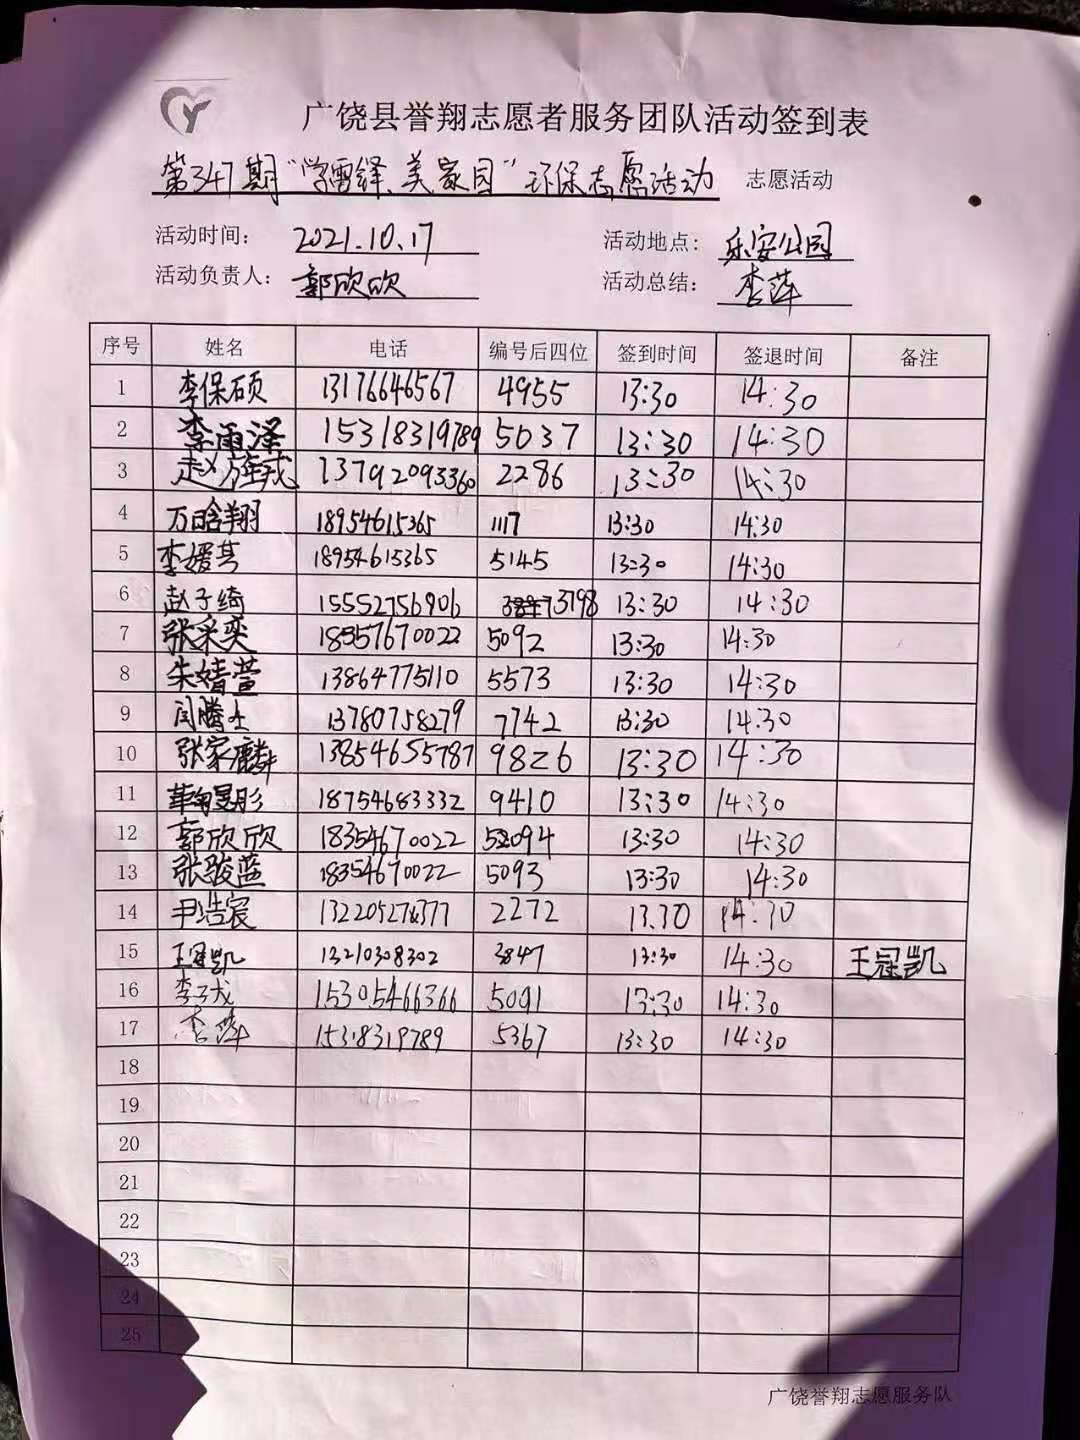 广饶县誉翔志愿者服务团队活动签到表
第347期"学雷锋、美家园"环保志愿活动 志愿活动
活动时间: 2021.10.17 活动地点: 乐安公园
活动负责人: 郭欣欣 活动总结: 李萍
序号 姓名 电话 编号后四位 签到时间 签退时间 备注
1 李保硕 13176646567 4955 13:30 14:30
2 李雨泽 15318319789 5037 13:30 14:30
3 赵 13792093360 2286 13:30 14:30
4 万晗翔 18954615365 1117 13:30 14:30
5 李媛其 18954615365 5145 13:30 14:30
6 赵子绮 15552756906 3198 13:30 14:30
7 张采奕 18357670022 5092 13:30 14:30
8 朱婧萱 13864775110 5573 13:30 14:30
9 闫腾士 13780758279 7742 13:30 14:30
10 张家麟 13854655787 9826 13:30 14:30
11 18754683332 9410 13:30 14:30
12 郭欣欣 18354670022 5094 13:30 14:30
13 张骏蓝 18354670022 5093 13:30 14:30
14 尹浩宸 2272 13:30 14:30
15 王冠凯 13210308302 3847 13:30 14:30 王冠凯
16 李 15305466366 5091 13:30 14:30
17 李萍 15318319789 5367 13:30 14:30
18
19
20
21
22
23
24
25
广饶誉翔志愿服务队